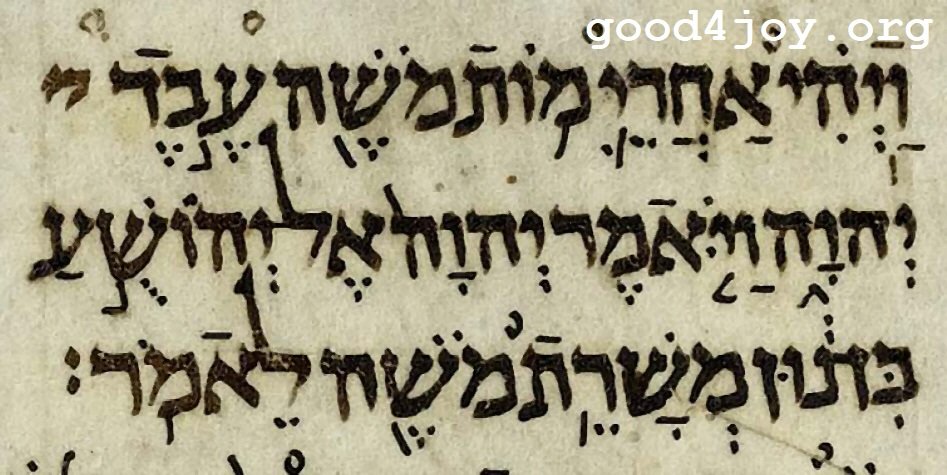 good4joy.org
וַיְהִ֗י אַחֲרֵ֛י מ֥וֹת מֹשֶׁ֖ה עֶ֣בֶד י
יְהוָ֑ה וַיֹּ֤אמֶר יְהוָה֙ אֶל יְהוֹשֻׁ֣עַ
בִּן נ֔וּן מְשָׁרֵ֥ת מֹשֶׁ֖ה לֵאמֹֽר׃